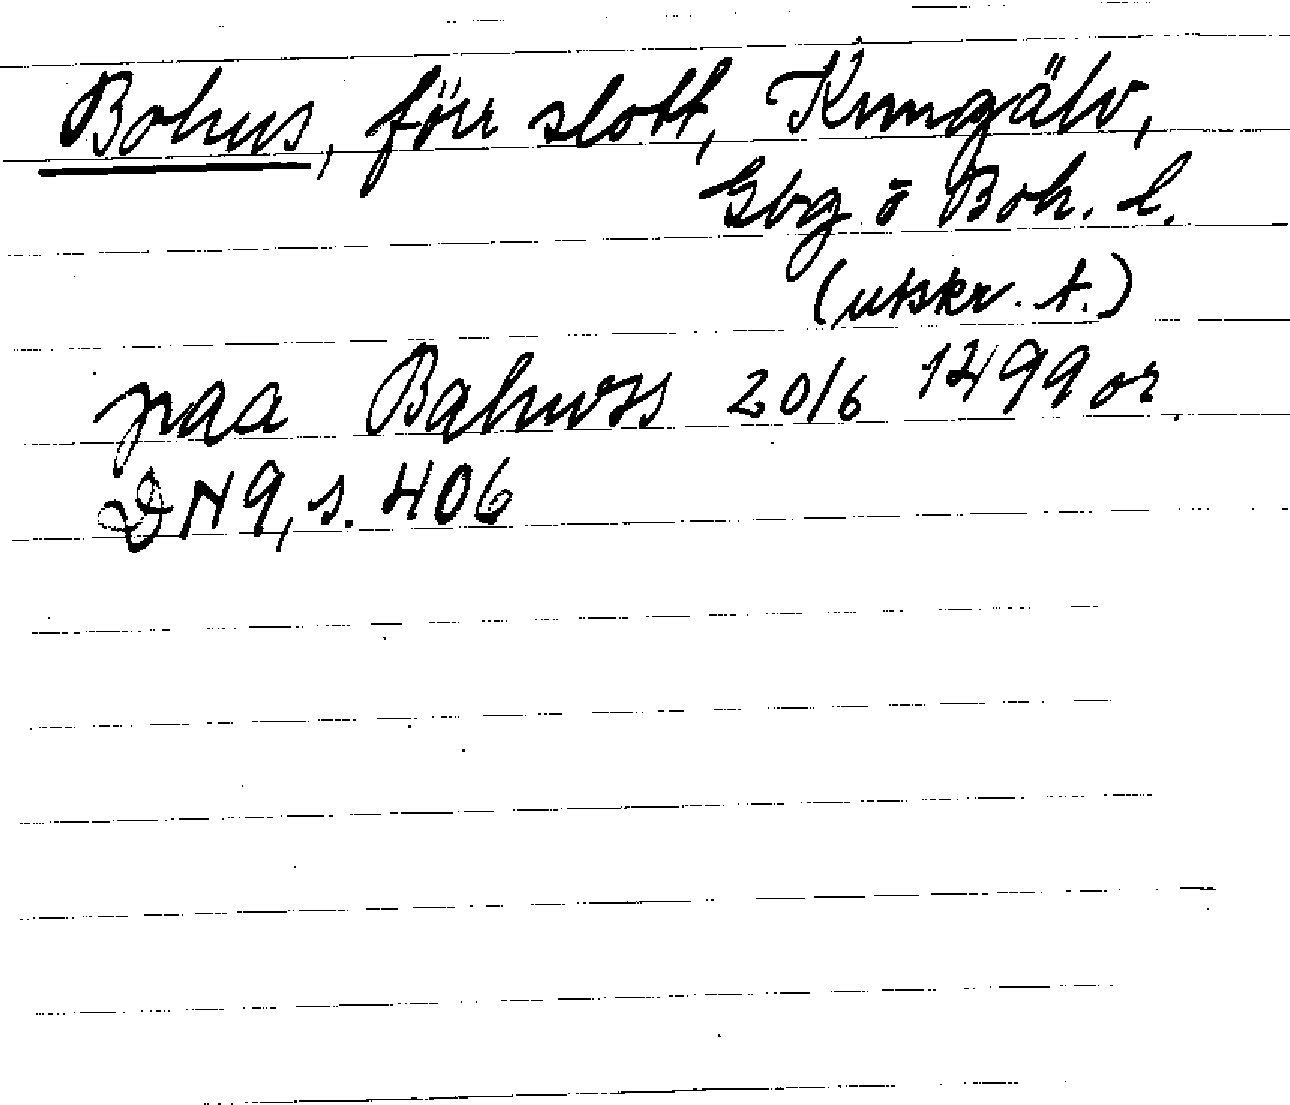 Bohus, förr slott, Kungälv,
Gbg o Boh. l.
(utskr. t.)
paa Bahwss 20/6 1499 or.
DN 9, s. 406